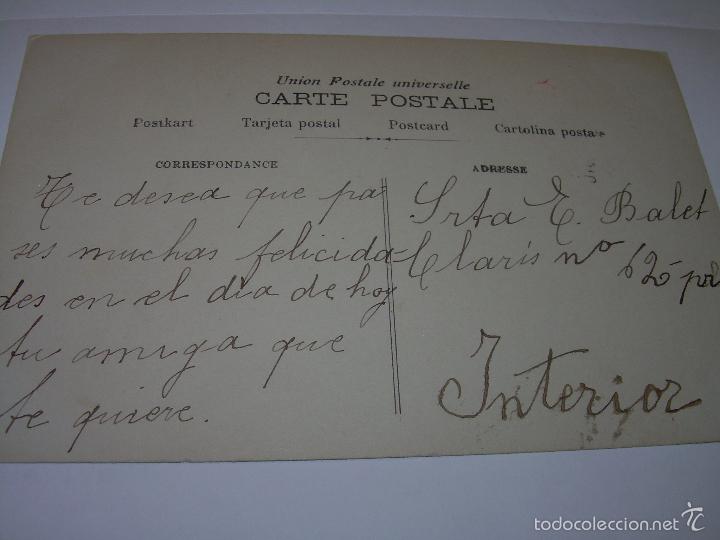 Union Postale universelle
CARTE POSTALE
Postkart Tarjeta postal Postcard Cartolina postale
CORRESPONDANCE
Te desea que pa
ses muchas felicida-
des en el dia de hoy
tu amiga que
te quiere.
ADRESSE
Srta E. Balet
Claris nº 62-pral
Interior
todocoleccion.net